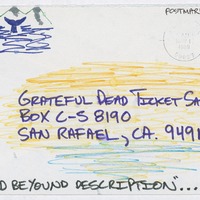 POSTMAR
GRATEFUL DEAD TICKET SA
BOX C-S 8190
SAN RAFAEL, CA. 9491
D BEYOUND DESCRIPTION"...